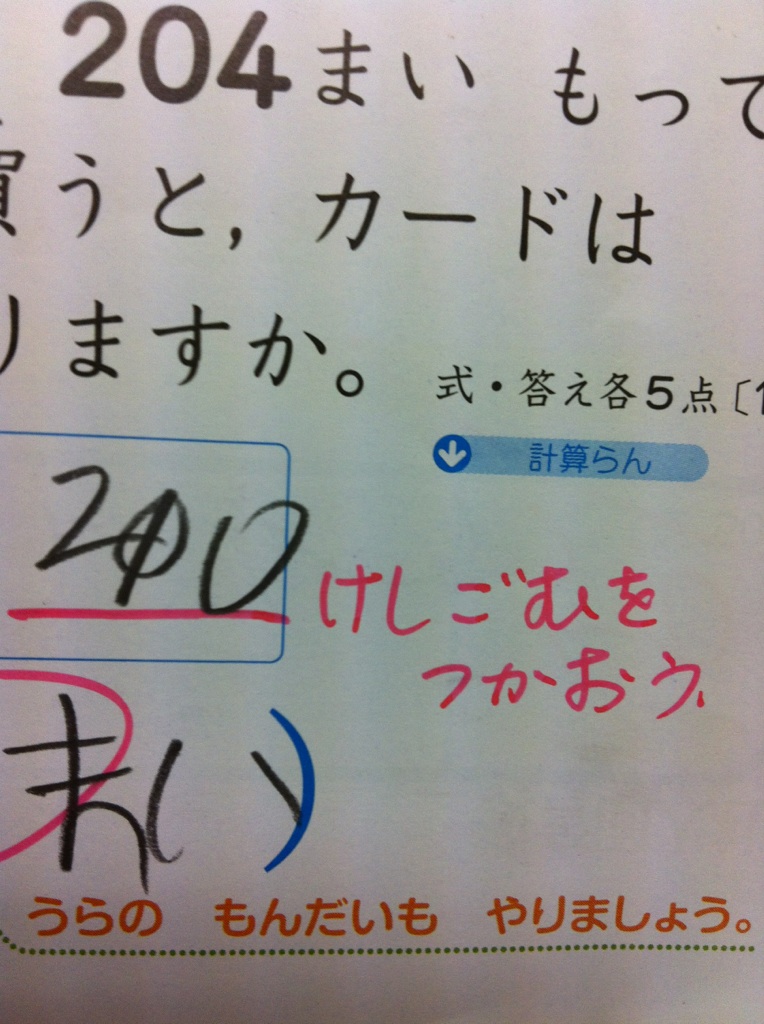 204まい もって
買うと，カードは
りますか。
式・答え各5点〔1
計算らん
200
けしごむを
つかおう。
まい )
うらの もんだいも やりましょう。